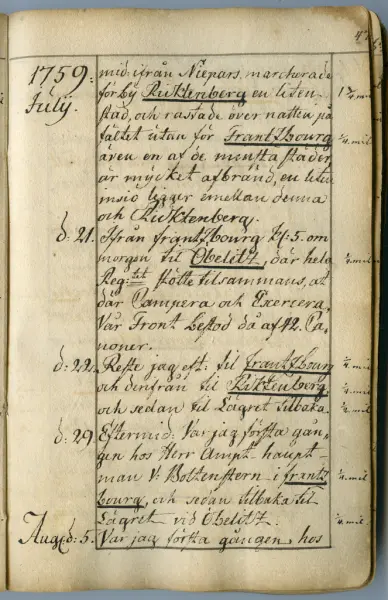 47
1759. mid: ifrån Niepars, marcherade
Julij. forby Ricktenberg en liten 1 3/4 mil
stad, och rastade över natten på
fältet utan för Frantzbourg 1/4 mil
även en af de minsta städer
är mycket afbränd, en liten
insiö ligger emellan denna
och Ricktenberg.
d: 21. Ifrån frantzbourg Kl: 5. om
morgon til Obelitz, där hela 1/4 mil.
Reg:tet stötte tilsammans, at
där Campera och Exercera,
Vår Front bestod då af 12. Ca-
noner.
d: 22. Reste jag eft: til frantzbourg 1/4 mil
och denfrån til Ricktenberg 1/4 mil.
och sedan til Lägret tilbaka. 1/2 mil.
d: 29. Eftermid: Var jag första gån-
gen hos Herr Ampt-haupt-
man V: Bottenstern i frantz 1/4 mil.
bourg, och sedan tilbaka til
Lägret vid Obelitz. 1/4 mil.
Aug: d: 5. Var jag första gången, hos